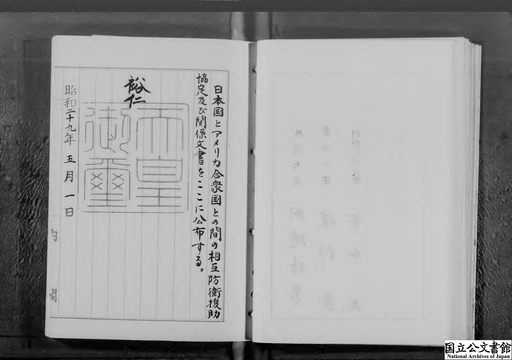 日本国とアメリカ合衆国との間の相互防衛援助
協定及び関係文書をここに公布する。
裕仁
天皇
御璽
昭和二十九年五月一日
内閣
国立公文書館
National Archives of Japan